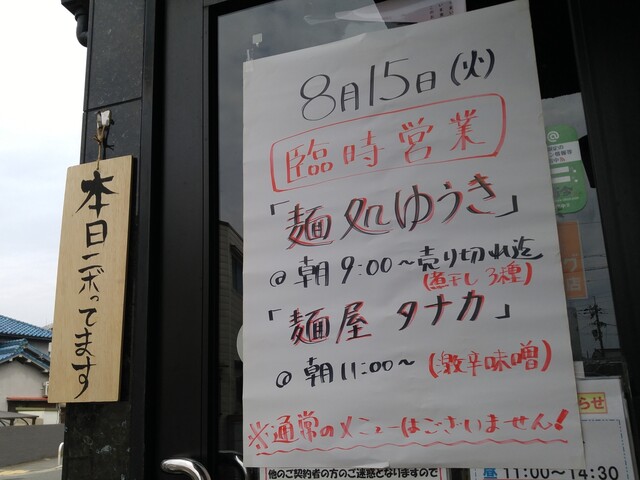 8月15日(火)
臨時営業
「麺処ゆうき」
@朝9:00~売り切れ迄
(煮干し3種)
「麺屋 タナカ」
@朝11:00~(激辛味噌)
※通常のメニューはございません!
他のご契約者の方のご迷惑となりますので
らせ
昼 11:00~14:30